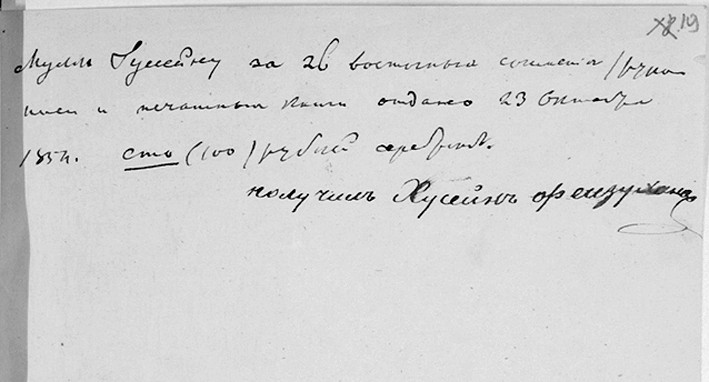 19
Муллѣ Гусейну за 26 восточныя сочиненія (руко
писи и печатныя книги отдано 23 Октября
1854. сто (100) рублей серебромъ.
получилъ Хусейнъ